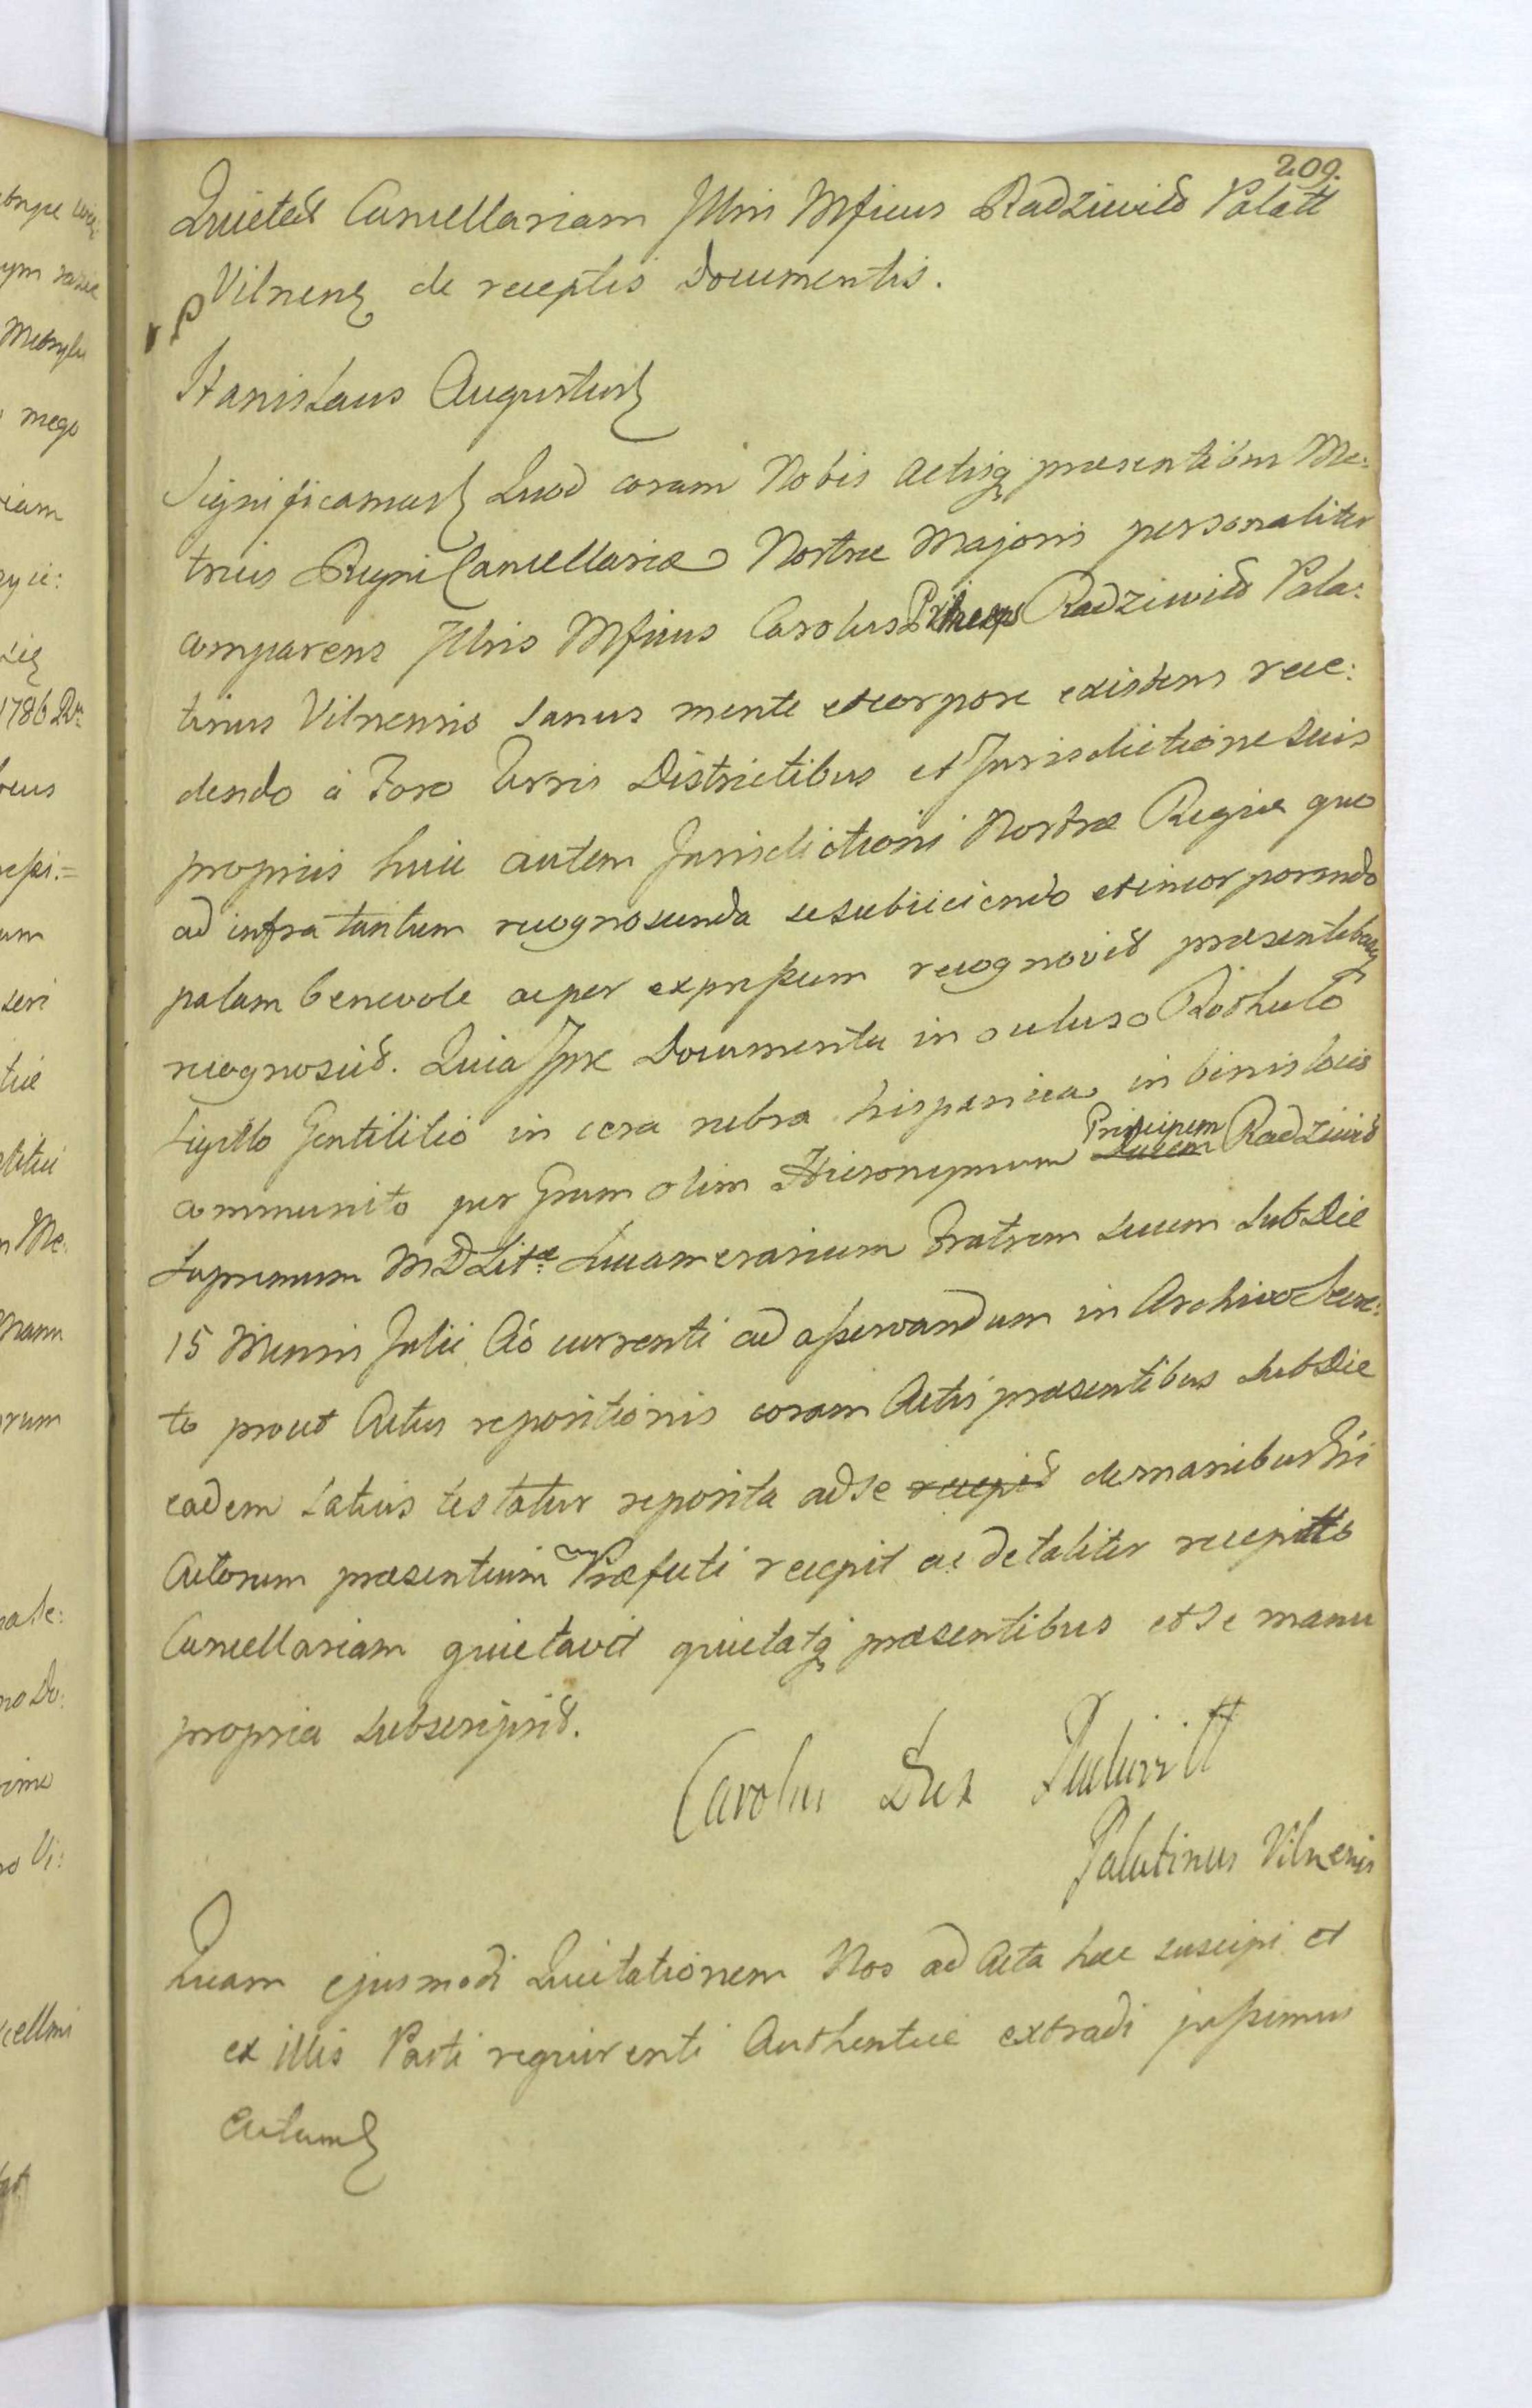 209.
Quietat Cancellariam Illris Mficus Radziwiłł Palatt
Vilnens de receptis Documentis.
Stanislaus Augustus
Significamus Quod coram Nobis Actisq praesentibus Me:
trices Regni Cancellariae Nostrae Majoris personaliter
comparens Illris Mficus Carolus Princeps Radziwiłł Pala:
tinus Vilnensis sanus mente et corpore existens rece:
dendo à Foro Terris Districtibus et Jurisdictione suis
propriis huic autem Jurisdictioni Nostrae Regiae quo
ad infra tantum recognoscenda se subiiciendo et incorporando
palam benevole ac per expressum recognovit praesentibusq
recognoscit. Quia Ipse Documenta in occluso Rothulo
Sigillo Gentilitio in cera rubra hispanica in binis locis
communito per Grum olim Hieronymum Ducem Principem Radziwiłł
Supremum MDLitae Succamerarium Fratrem suum sub Die
15 Mensis Julii Aô currenti ad asservandum in Archivo Secre:
to prout Actus repositionis coram Actis praesentibus sub Die
eadem Latius testatur reposita ad se recepit de manibus Gsi
Actorum praesentium Praefecti recepit ac de taliter receptis
Cancellariam quietavit quietatq praesentibus et se manu
propria subscripsit.
Carolus Dux Radziwill
Palatinus Vilnensis
Quam ejusmodi Quietationem Nos ad Acta haec suscipi et
ex illis Parti requirenti Authentice extradi jussimus
Actum